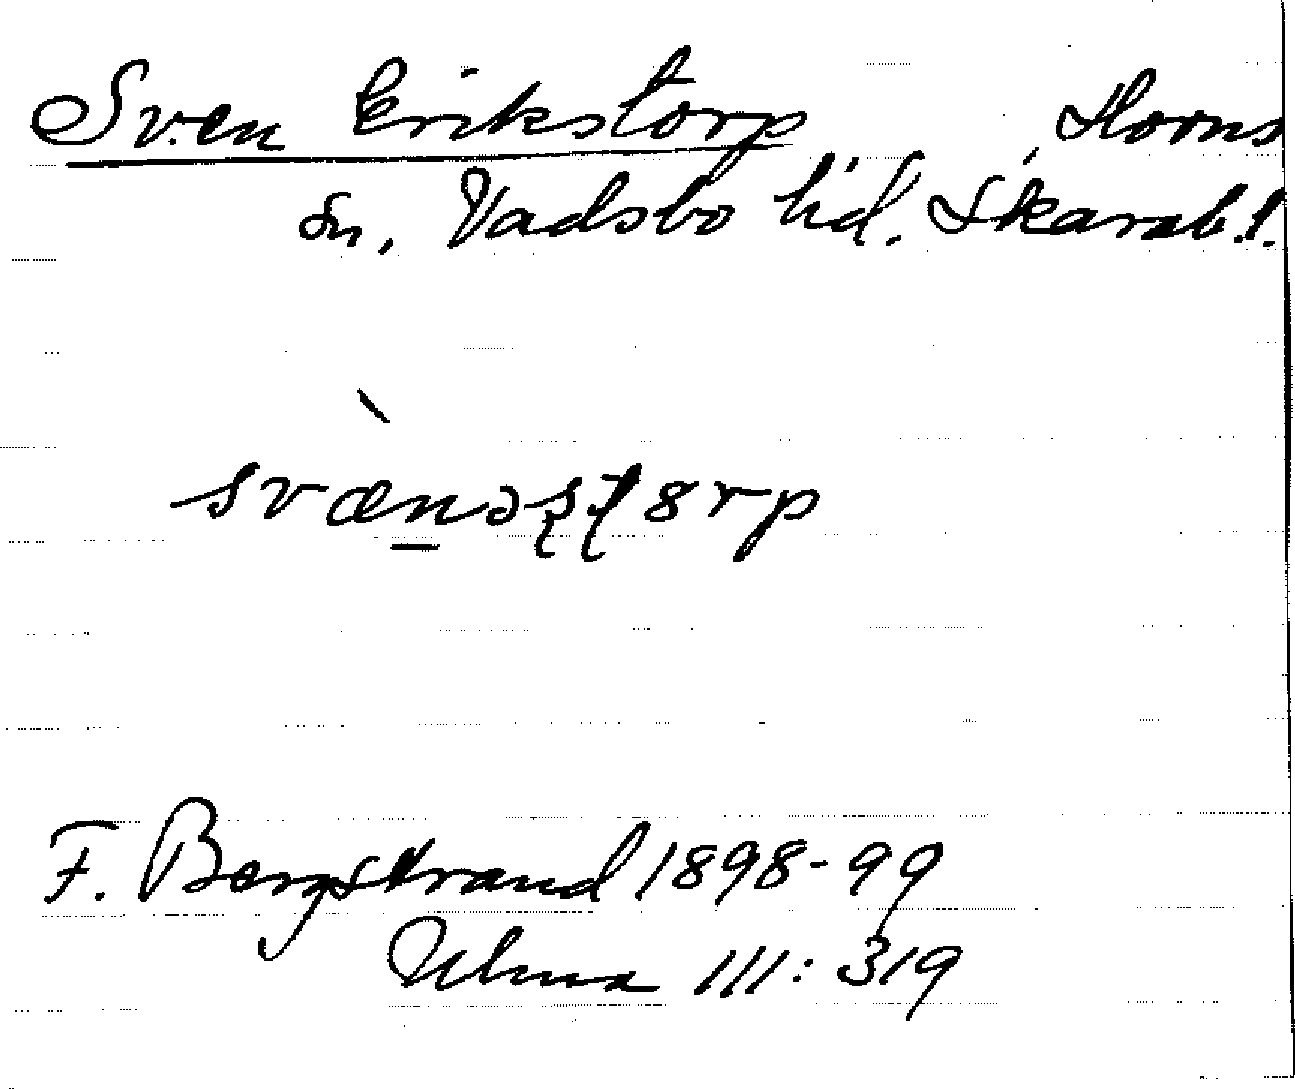 Sven Erikstorp, Horns
sn, Vadsbo hd. Skarab.l.
svænəsʈ8rp
F. Bergstrand 1898-99
Ulma III: 319